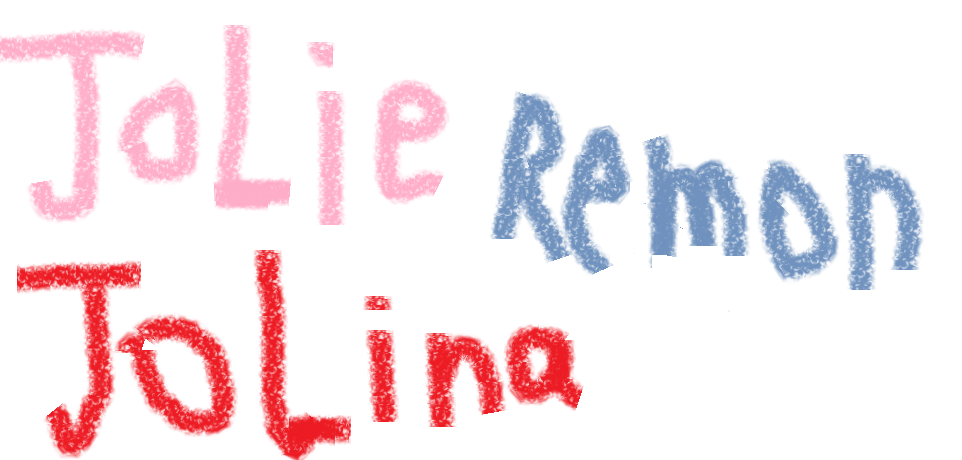 JoLie
Remon
JoLina